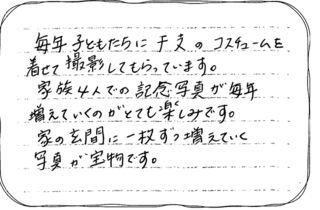 毎年子どもたちに干支のコスチュームを
着せて撮影してもらっています。
家族4人での記念写真が毎年
増えていくのがとても楽しみです。
家の玄関に一枚ずつ増えていく
写真が宝物です。